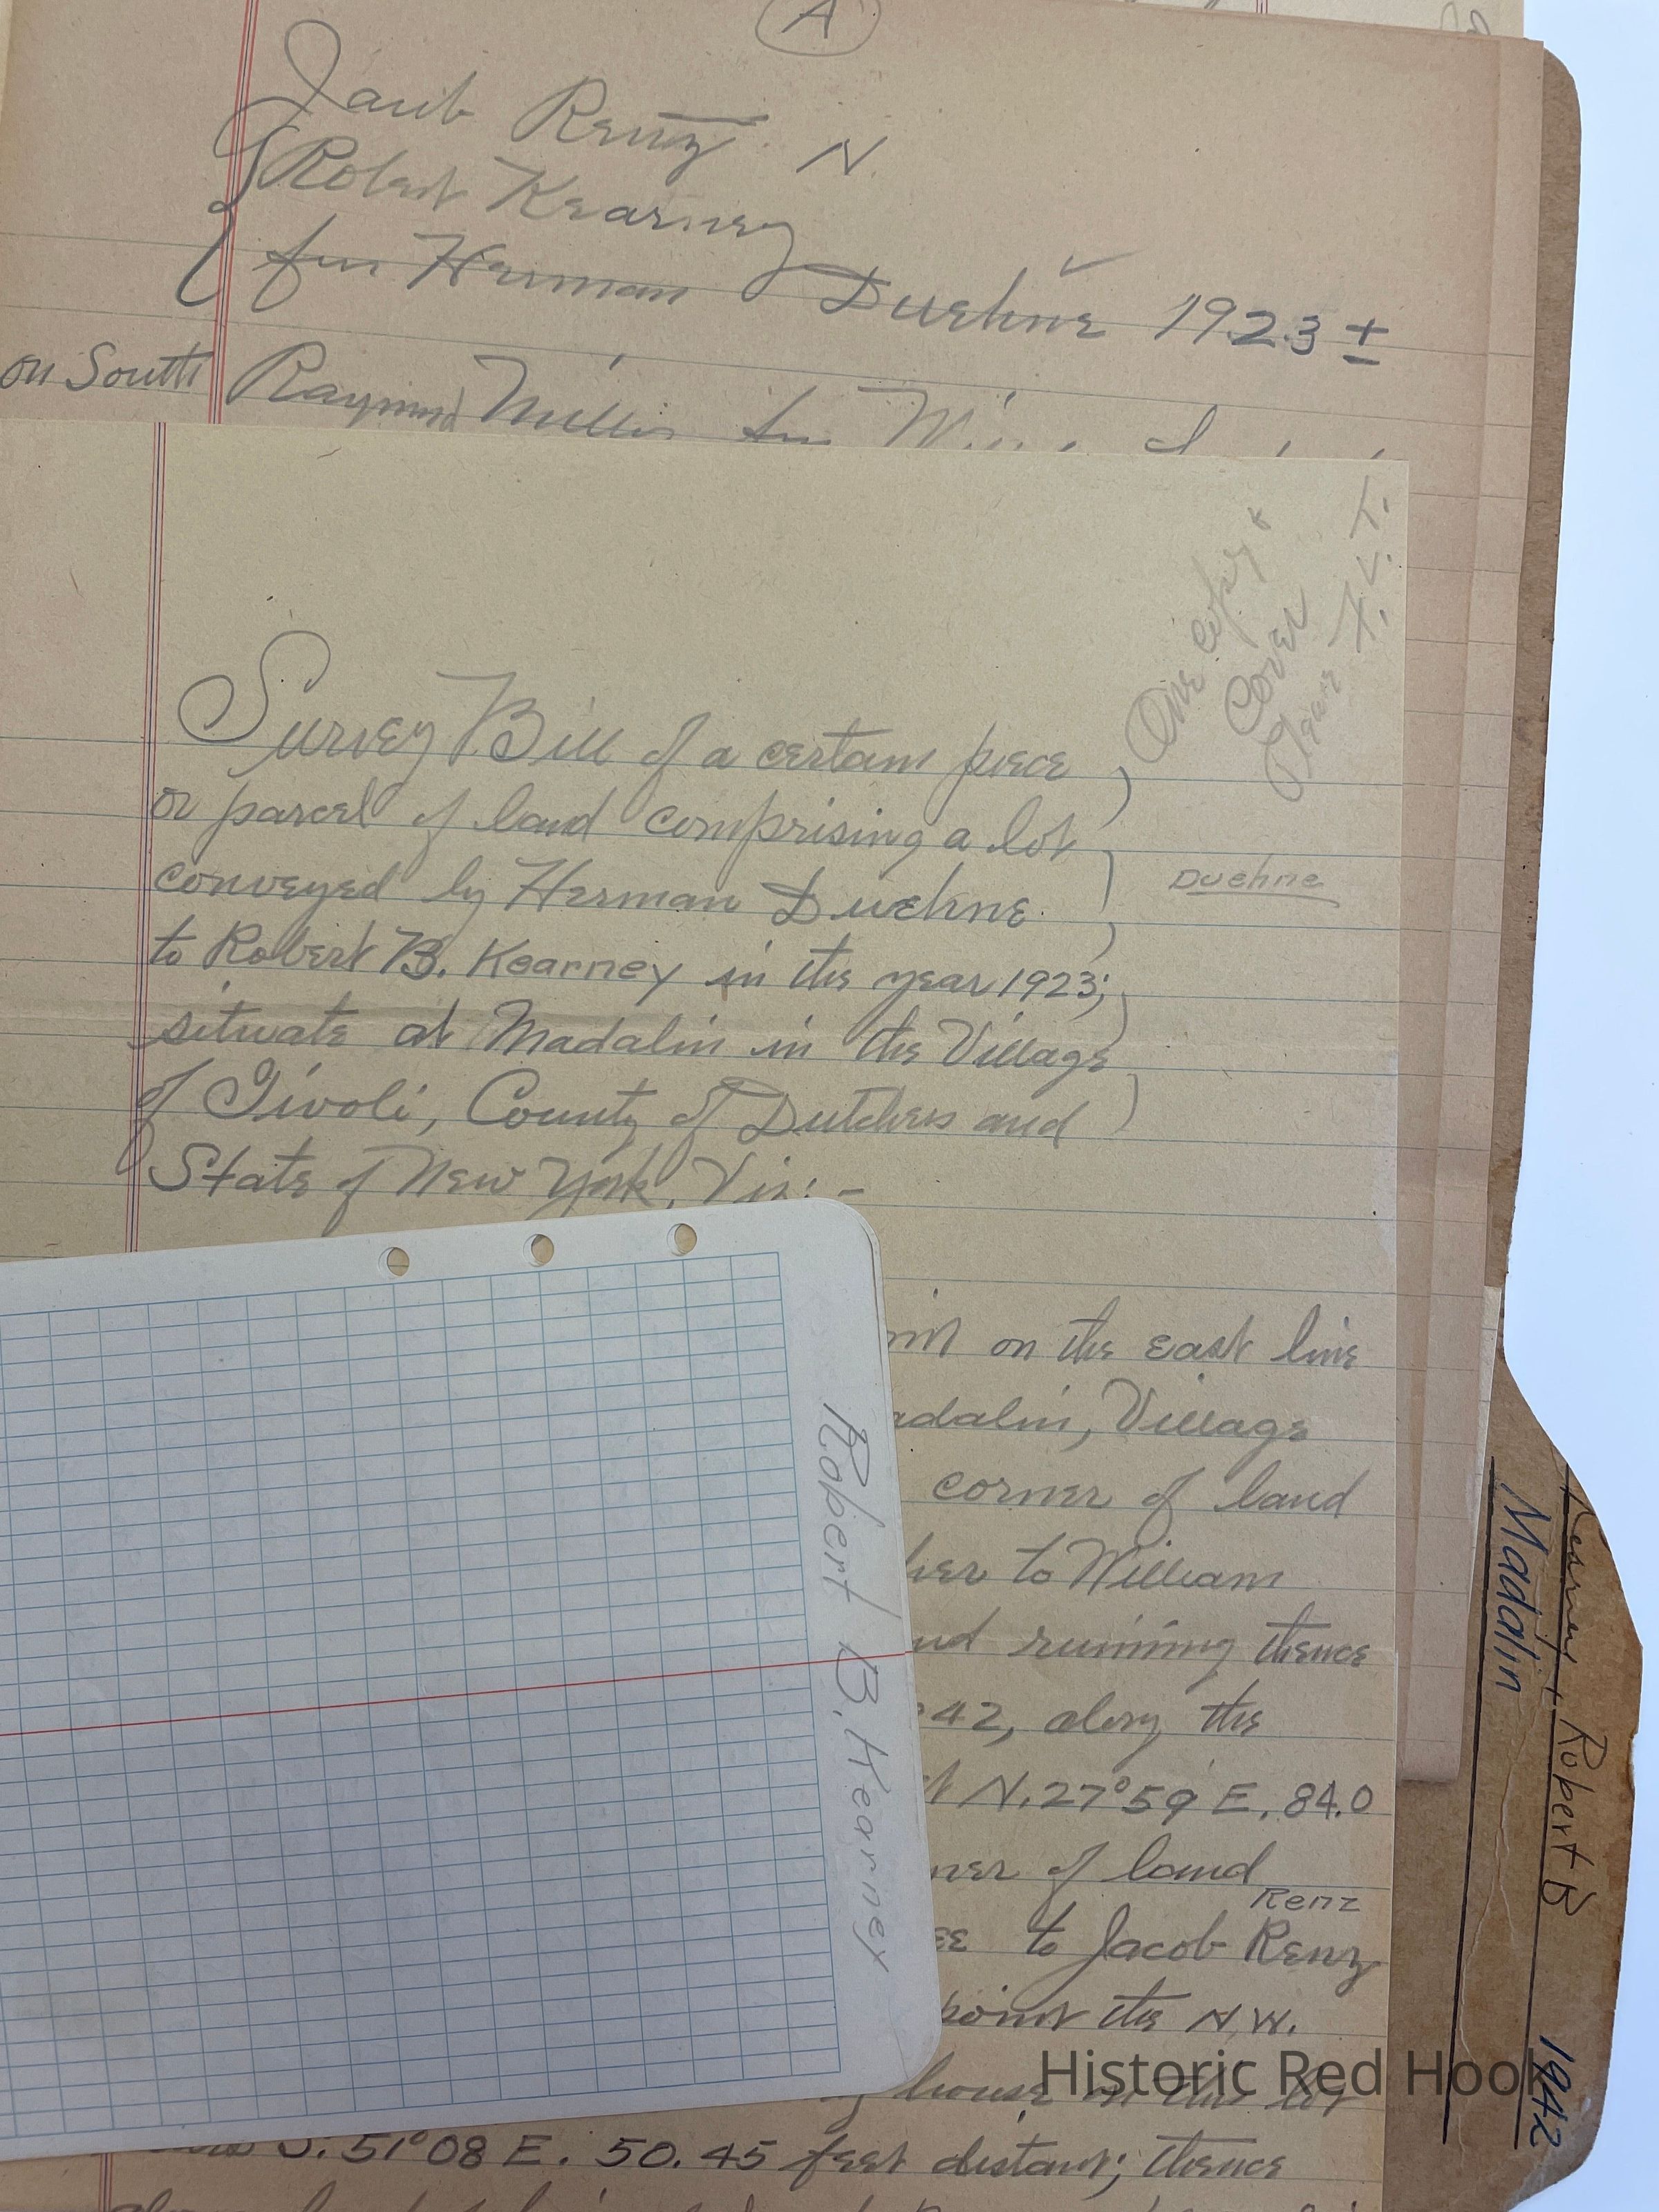 A
Jacob Renz N.
Robert Kearney
fm Herman Duehne 1923 ±
on South Raymond Miller fm
One copy &
Cover
F. V. T.
Survey Bill of a certain piece
or parcel of land comprising a lot
conveyed by Herman Duehne
Duehne
to Robert B. Kearney in the year 1923;
situate at Madalin in the Village
of Tivoli, County of Dutchess and
State of New York, Viz: -
on the east line
adalin, Village
corner of land
to William
running thence
42, along the
N. 27° 59 E. 84.0
ner of land
Renz
to Jacob Renz
point the N.W.
house on this lot
S. 51° 08 E. 50.45 feet distant; thence
Robert B. Kearney
Kearney, Robert B 1942
Madalin
Historic Red Hook